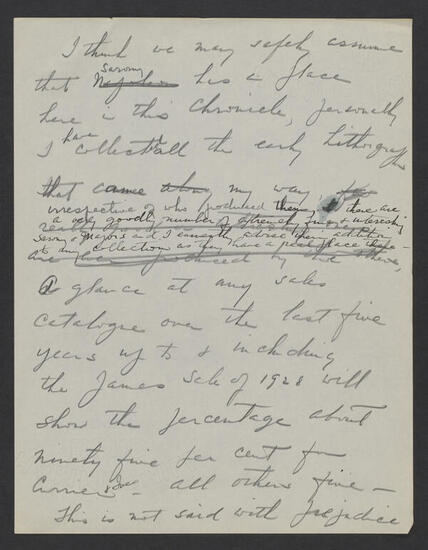 I think we may safely assume
that Sarony Napoleon has a place
here in this Chronicle, personally
I have collected all the early Lithographs
that came along my way
irrespective of who produced them, & there are
a very goodly number of extremely fine & interesting
Sarony & Majors and I earnestly advise their addition
to any collection as they have a real place there -
are produced by the others,
A glance at any sales
catalogue over the last five
years up to & including
the James Sale of 1928 will
show the percentage about
ninety five per cent for
Currier & Ives - all others five -
This is not said with prejudice